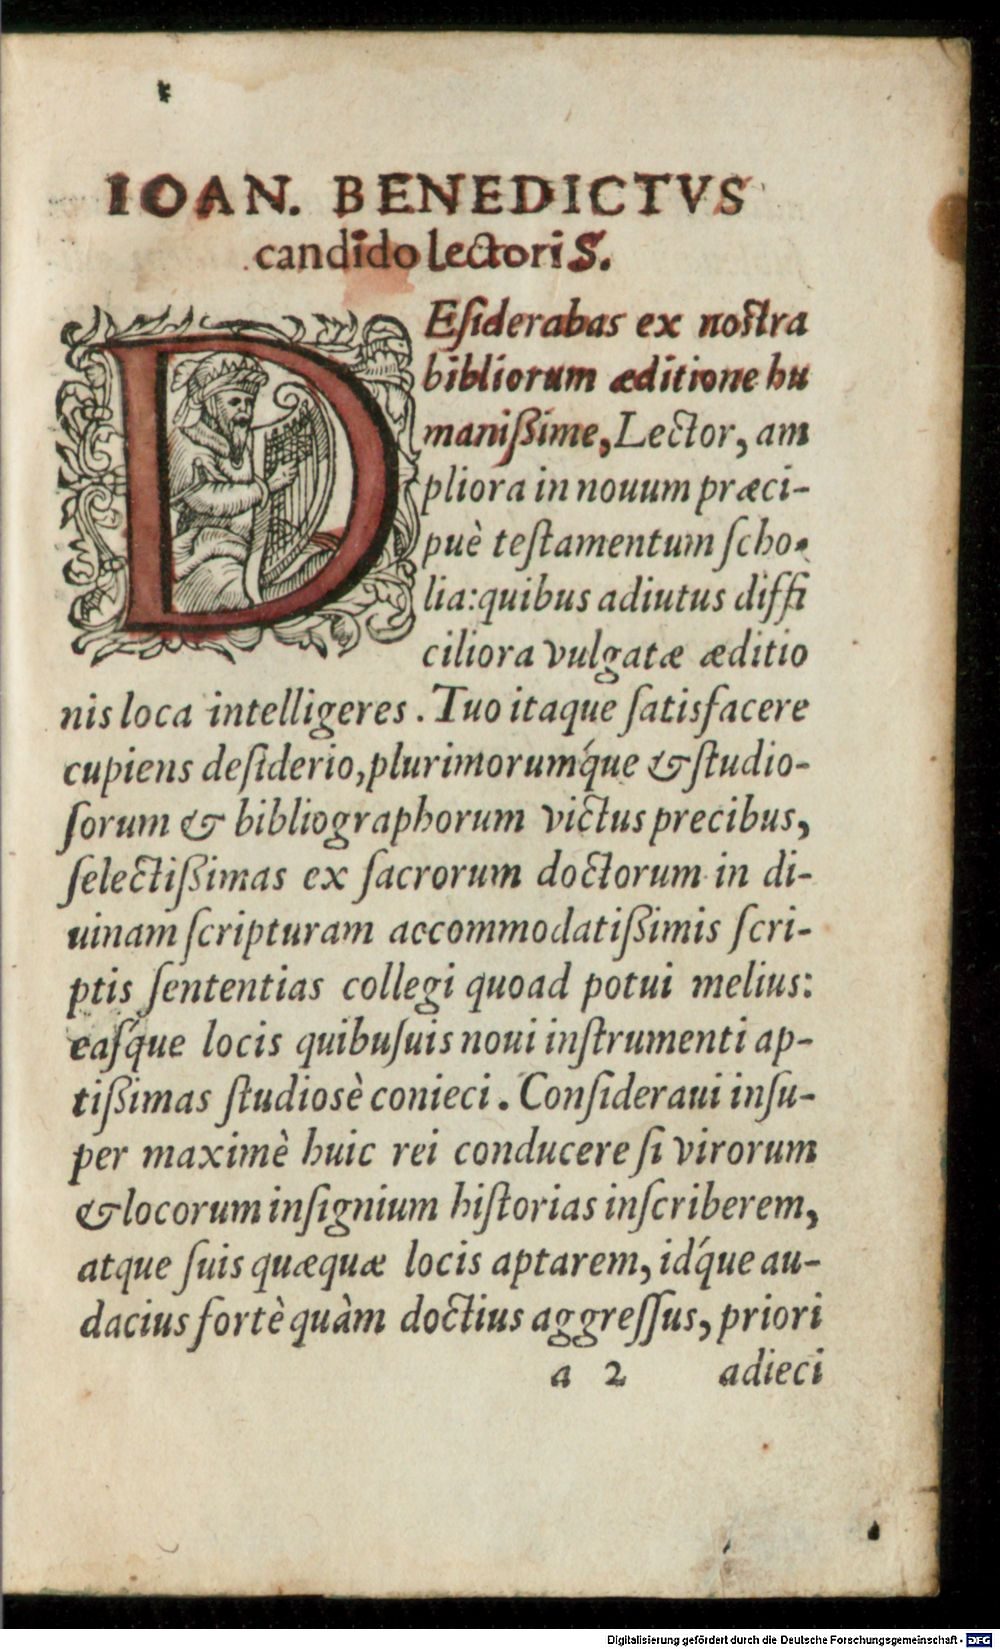 IOAN. BENEDICTVS
candido lectori S.
DEſiderabas ex noſtra
bibliorum æditione hu
manißime, Lector, am
pliora in nouum præci-
puè teſtamentum ſcho-
lia: quibus adiutus diffi
ciliora vulgatæ æditio
nis loca intelligeres. Tuo itaque ſatisfacere
cupiens deſiderio, plurimorumq́ue & ſtudio-
ſorum & bibliographorum victus precibus,
ſelectißimas ex ſacrorum doctorum in di-
uinam ſcripturam accommodatißimis ſcri-
ptis ſententias collegi quoad potui melius:
eaſq́ue locis quibuſuis noui inſtrumenti ap-
tißimas ſtudiosè conieci. Conſideraui inſu-
per maximè huic rei conducere ſi virorum
& locorum inſignium hiſtorias inſcriberem,
atque ſuis quæquæ locis aptarem, idq́ue au-
dacius fortè quàm doctius aggreſſus, priori
a 2 adieci
Digitalisierung gefördert durch die Deutsche Forschungsgemeinschaft - DFG